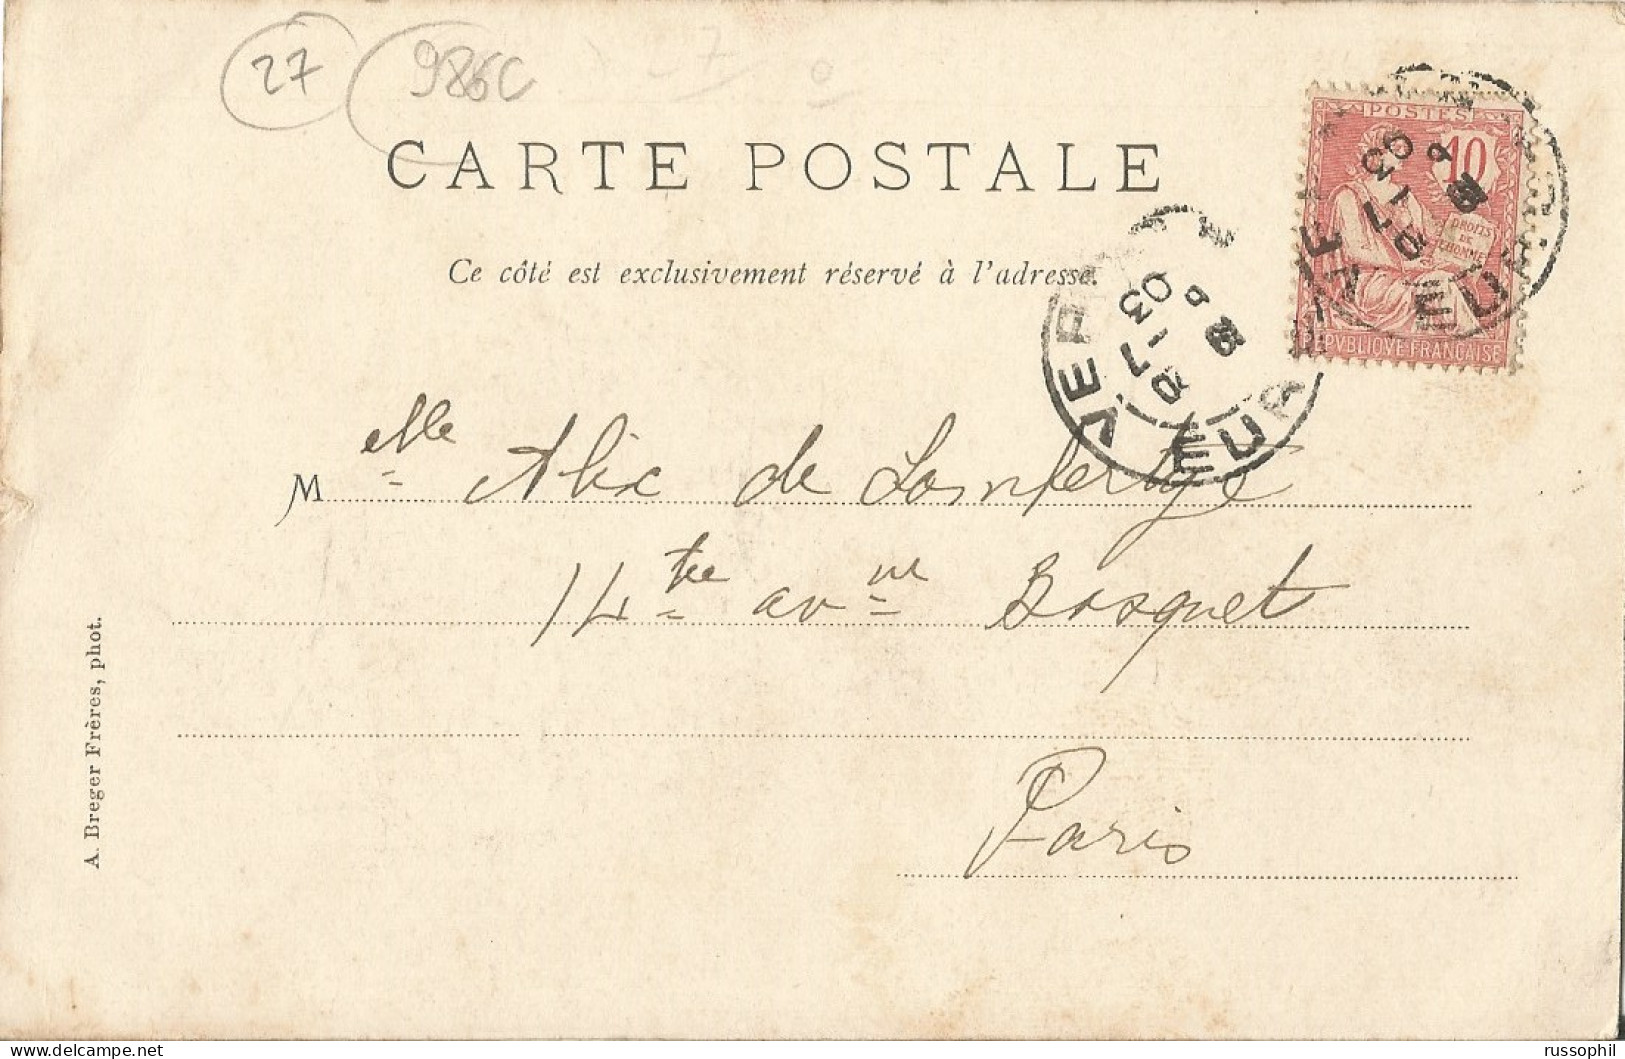 27
986C
27
CARTE POSTALE
Ce côté est exclusivement réservé à l'adresse.
POSTES
10
DROITS
DE
L'HOMME
REPVBLIQVE FRANÇAISE
03
-7
EUR
VER
03
-7
EUR
M elle Alix de Lambertye
14 ter av nue Bosquet
Paris
A. Breger Frères, phot.
russophil